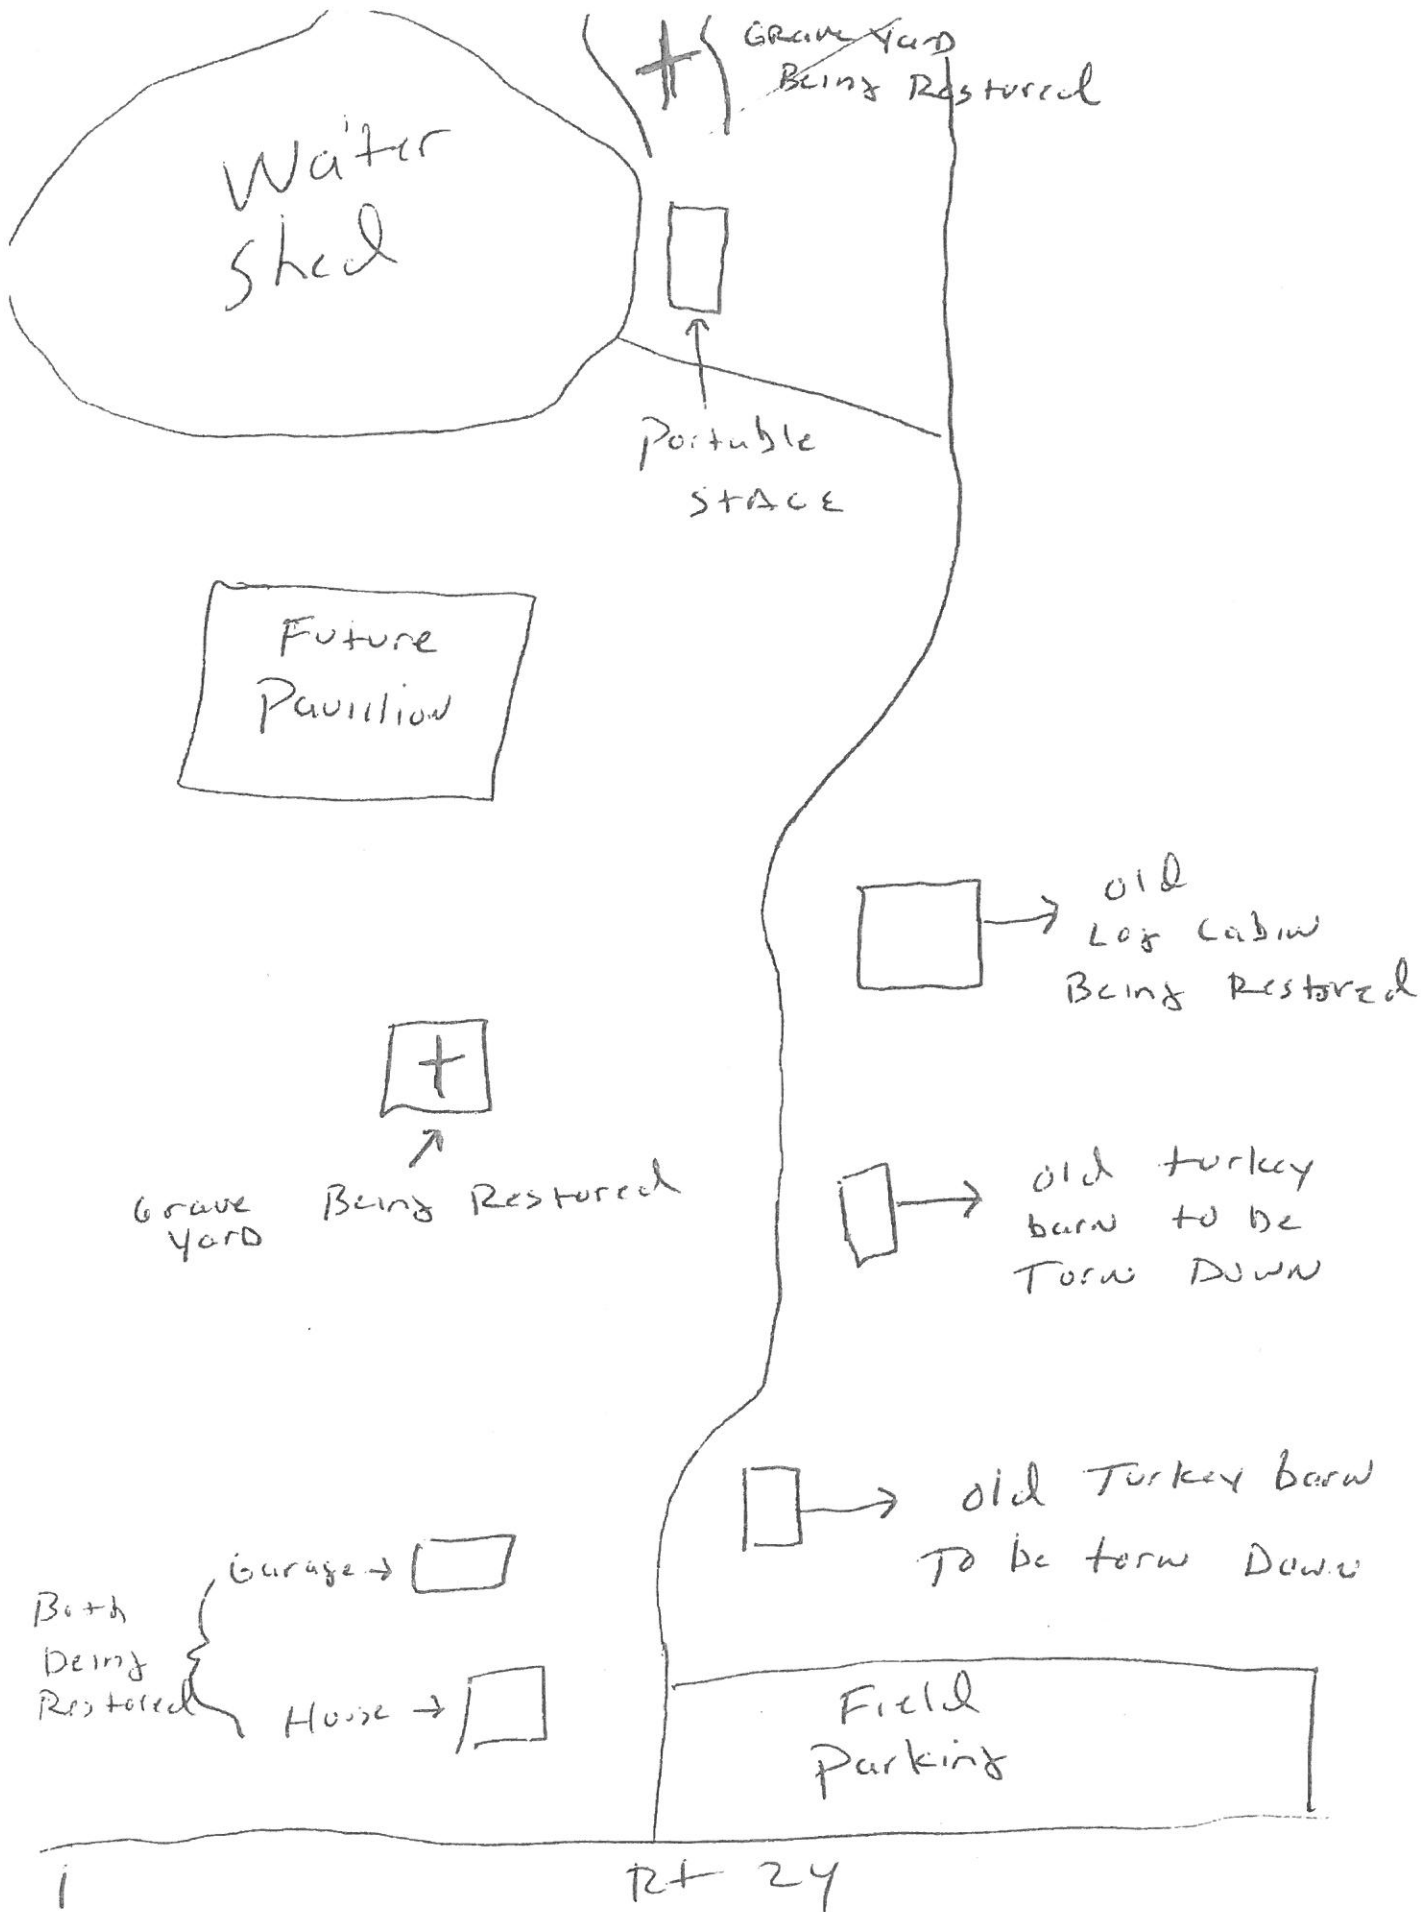 Grave Yard
Being Restored
Water
Shed
Portable
STAGE
Future
Pavillion
old
Log Cabin
Being Restored
Grave Being Restored
Yard
old turkey
barn to be
Torn Down
old Turkey barn
To be torn Down
Garage
Both
Being
Restored
House
Field
Parking
Rt 24